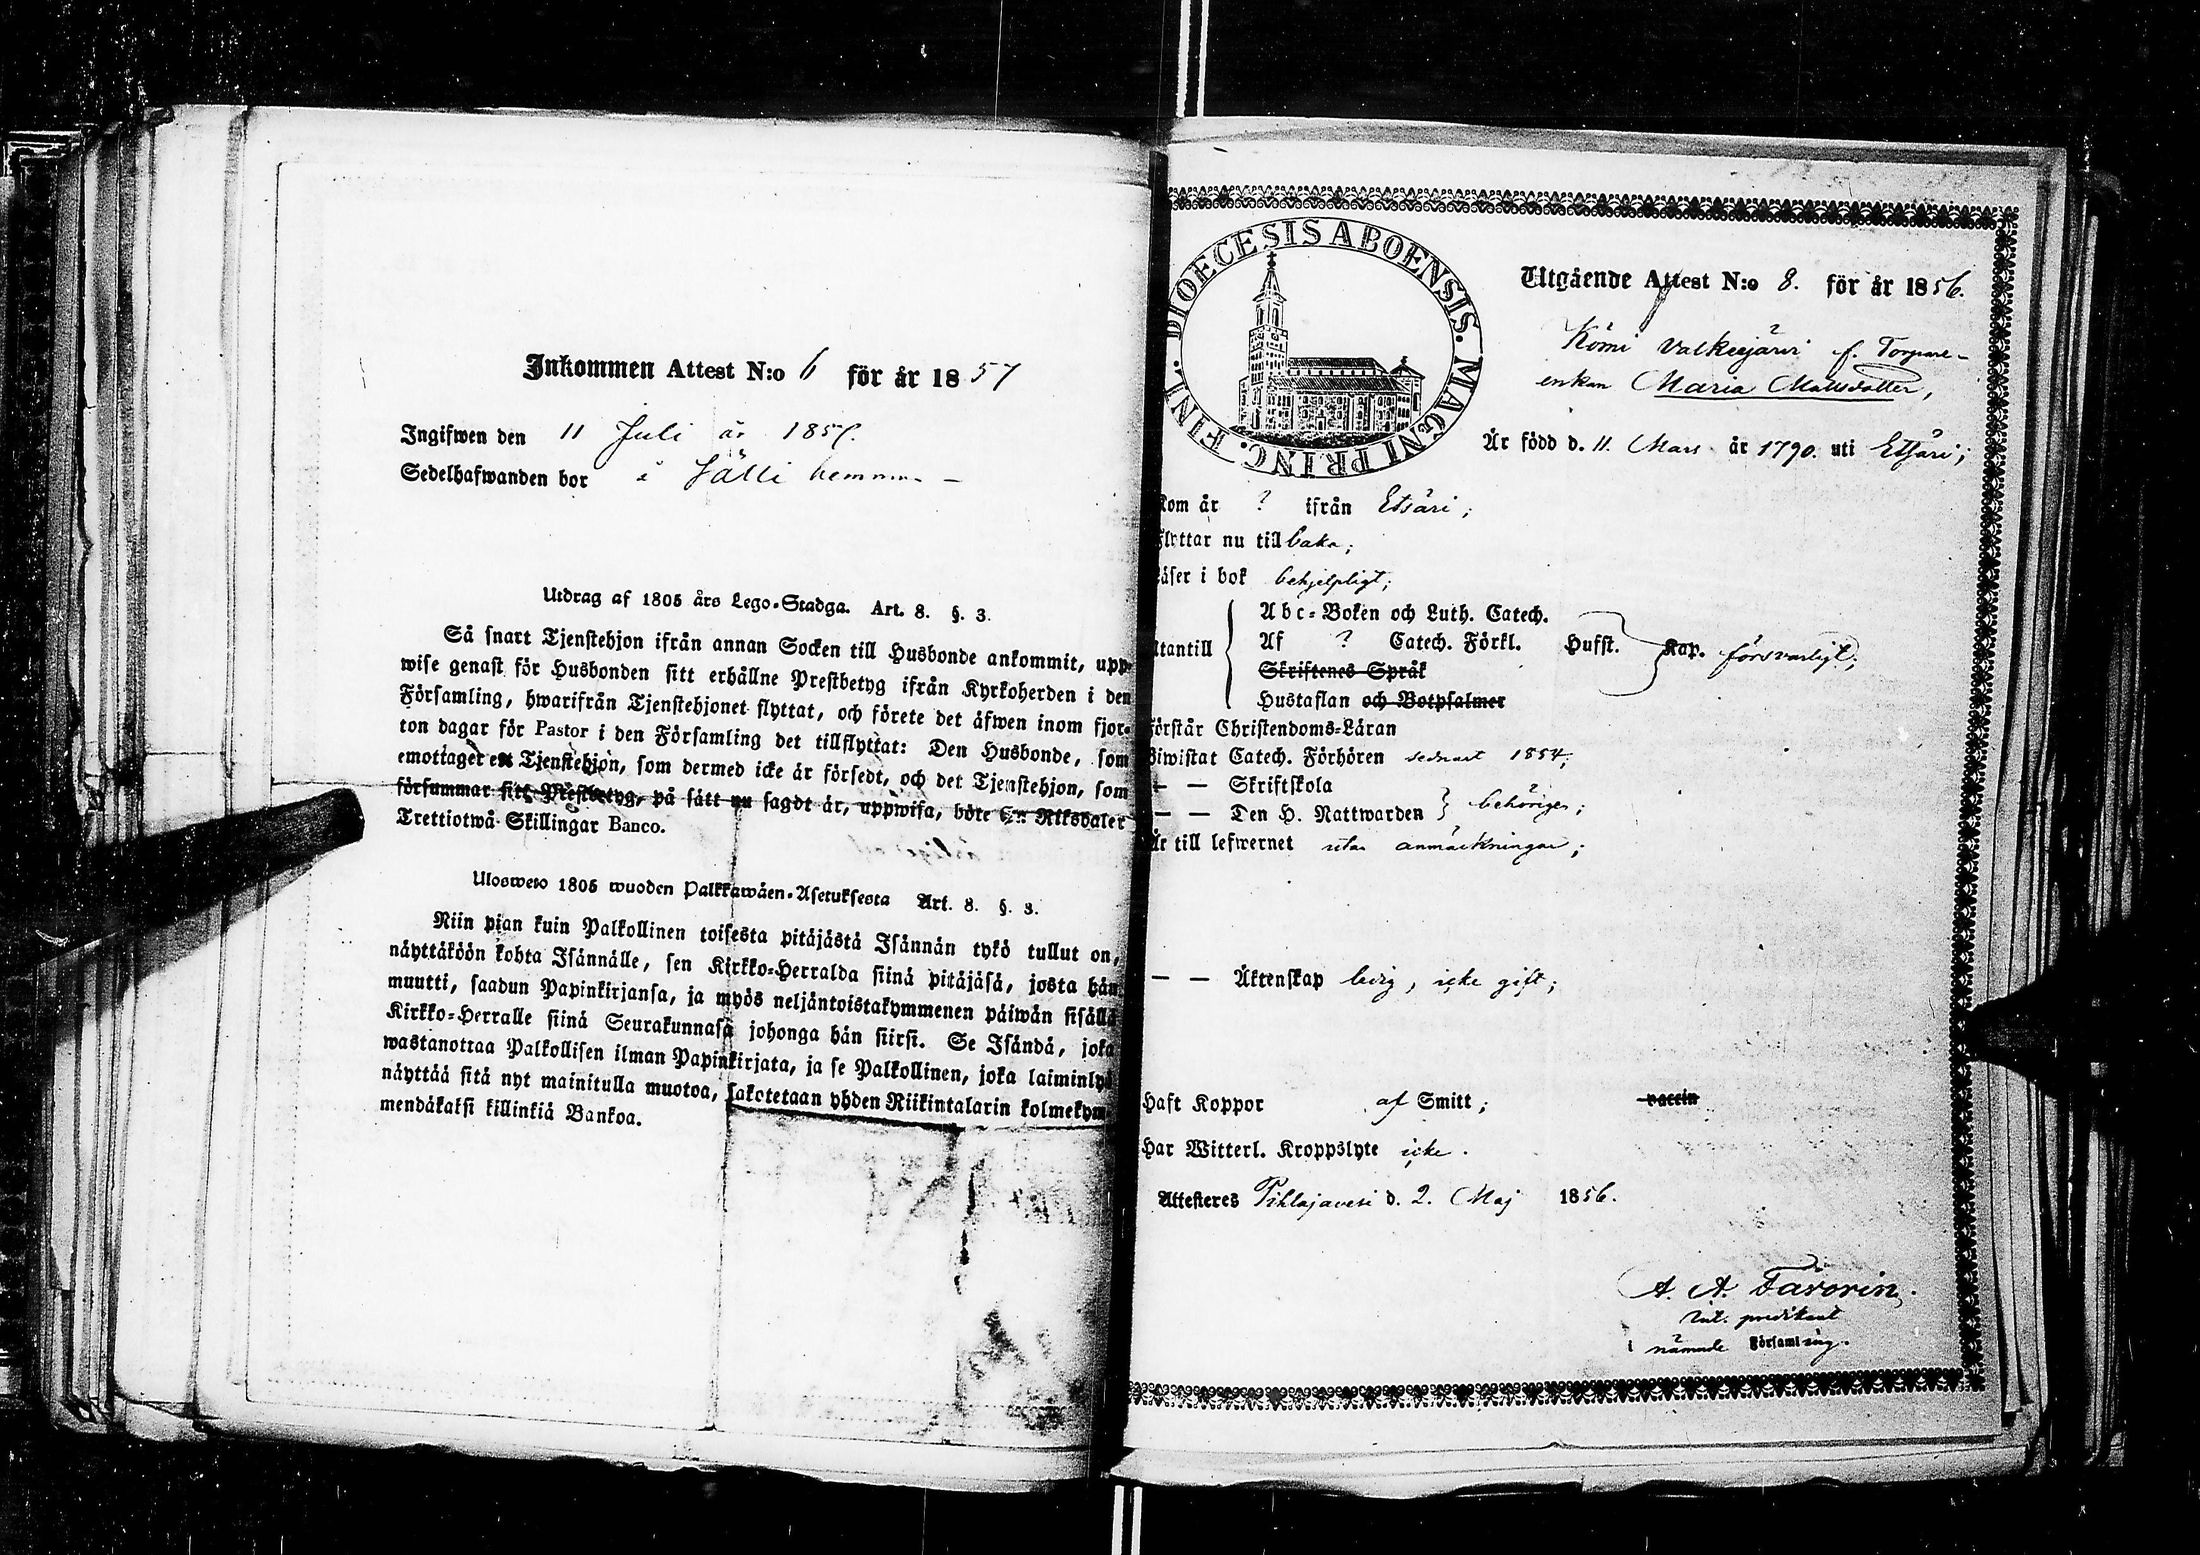 Inkommen Attest N:o 6 för år 1857
Ingifwen den 11 Juli år 1857.
Sedelhafwanden bor i Jälli hemman
Utdrag af 1805 års Lego-Stadga. Art. 8. §. 3.
Så snart Tjenstehjon ifrån annan Socken till Husbonde ankommit, upp-
wise genast för Husbonden sitt erhållne Prestbetyg ifrån Kyrkoherden i den
Församling, hwarifrån Tjenstehjonet flyttat, och förete det äfwen inom fjor-
ton dagar för Pastor i den Församling det tillflyttat: Den Husbonde, som
emottager en Tjenstehjon, som dermed icke är försedt, och det Tjenstehjon, som
försummar sitt Prestbetyg, på sätt nu sagdt är, uppwisa, böte En Riksdaler
Trettiotwå Skillingar Banco.
Uloswето 1805 wuoden Palkkawäen-Asetuksesta Art. 8. §. 3.
Niin pian kuin Palkollinen toisesta pitäjästä Isännän tykö tullut on,
näyttäköön kohta Isännälle, sen Kirkko-Herralda siinä pitäjäsä, josta hän
muutti, saadun Papinkirjansa, ja myös neljäntoistakymmenen päiwän sisällä
Kirkko-Herralle siinä Seurakunnasa johonga hän siirsi. Se Isändä, joka
wastanottaa Palkollisen ilman Papinkirjata, ja se Palkollinen, joka laiminlyö
näyttää sitä nyt mainitulla muotoa, sakotetaan yhden Riikintalarin kolmekym-
mendäkaksi killinkiä Bankoa.
DIOECESIS ABOENSIS. MAGNI PRINC. FINL.
Utgående Attest N:o 8. för år 1856.
Kömi Valkeejärvi f. Torpare-
enkan Maria Mattsdotter,
Är född d. 11. Mars år 1790. uti Etsäri;
Kom år ? ifrån Etsäri;
Flyttar nu tillbaka;
Läser i bok behjelpligt;
Utantill Abc-Boken och Luth. Catech.
Af ? Catech. Förkl. Hufst. Kap. försvarligt;
Skriftenes Språk
Hustaflan och Botpsalmer
Förstår Christendoms-Läran
Biwistat Catech. Förhören sednast 1854;
— — Skriftskola
— — Den H. Nattwarden behörigen;
Är till lefwernet utan anmärkningar;
— — Äktenskap ledig, icke gift;
Haft Koppor af Smitt; vaccin
Har Witterl. Kroppslyte icke.
Attesteres Pihlajavesi d. 2. Maj 1856.
A. A. Favorin.
predikant
i nämnde Församling.